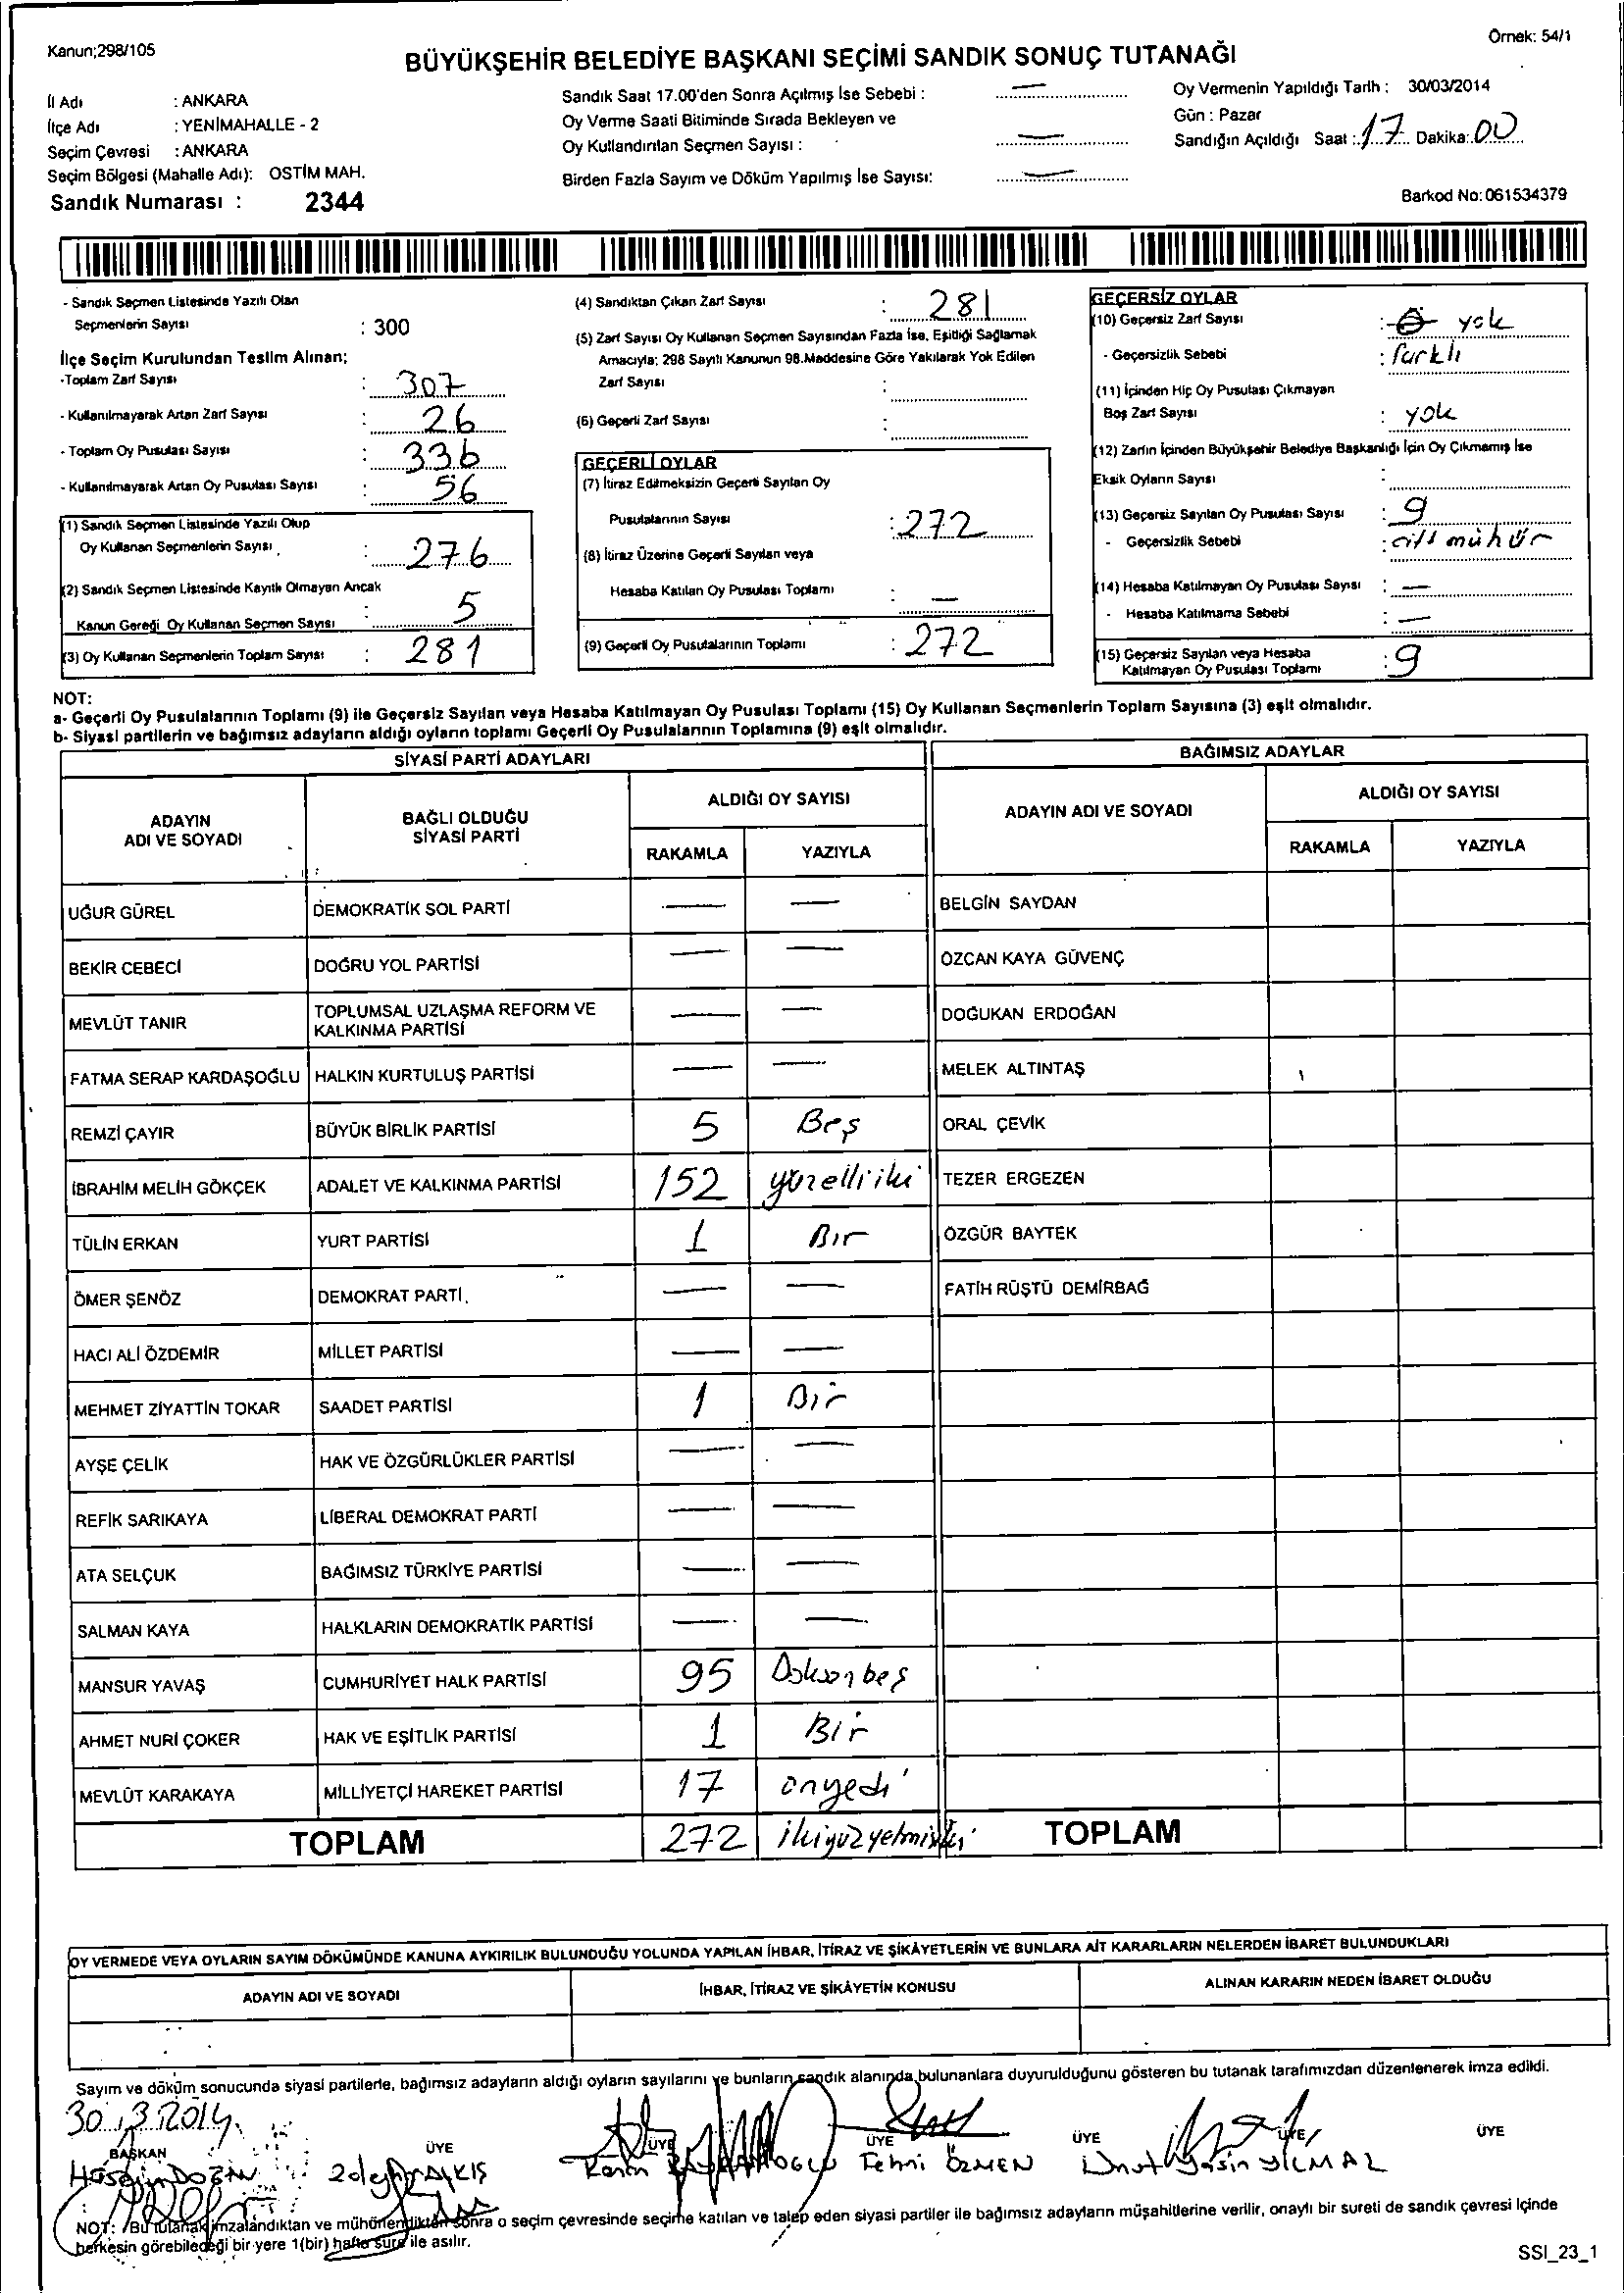 Kanun;298/105
Örnek: 54/1
BÜYÜKŞEHİR BELEDİYE BAŞKANI SEÇİMİ SANDIK SONUÇ TUTANAĞI
İl Adı : ANKARA
İlçe Adı : YENİMAHALLE - 2
Seçim Çevresi : ANKARA
Seçim Bölgesi (Mahalle Adı): OSTİM MAH.
Sandık Numarası : 2344
Sandık Saat 17.00'den Sonra Açılmış İse Sebebi : —
Oy Verme Saati Bitiminde Sırada Bekleyen ve
Oy Kullandırılan Seçmen Sayısı : —
Birden Fazla Sayım ve Döküm Yapılmış İse Sayısı: —
Oy Vermenin Yapıldığı Tarih : 30/03/2014
Gün : Pazar
Sandığın Açıldığı Saat : 17 Dakika: 00
Barkod No: 061534379
- Sandık Seçmen Listesinde Yazılı Olan
Seçmenlerin Sayısı : 300
İlçe Seçim Kurulundan Teslim Alınan;
-Toplam Zarf Sayısı : 307
- Kullanılmayarak Artan Zarf Sayısı : 26
- Toplam Oy Pusulası Sayısı : 336
- Kullanılmayarak Artan Oy Pusulası Sayısı : 56
(1) Sandık Seçmen Listesinde Yazılı Olup
Oy Kullanan Seçmenlerin Sayısı : 276
(2) Sandık Seçmen Listesinde Kayıtlı Olmayan Ancak
Kanun Gereği Oy Kullanan Seçmen Sayısı : 5
(3) Oy Kullanan Seçmenlerin Toplam Sayısı : 281
(4) Sandıktan Çıkan Zarf Sayısı : 281
(5) Zarf Sayısı Oy Kullanan Seçmen Sayısından Fazla İse, Eşitliği Sağlamak
Amacıyla; 298 Sayılı Kanunun 98.Maddesine Göre Yakılarak Yok Edilen
Zarf Sayısı :
(6) Geçerli Zarf Sayısı :
GEÇERLİ OYLAR
(7) İtiraz Edilmeksizin Geçerli Sayılan Oy
Pusulalarının Sayısı : 272
(8) İtiraz Üzerine Geçerli Sayılan veya
Hesaba Katılan Oy Pusulası Toplamı : —
(9) Geçerli Oy Pusulalarının Toplamı : 272
GEÇERSİZ OYLAR
(10) Geçersiz Zarf Sayısı : yok
- Geçersizlik Sebebi : farklı
(11) İçinden Hiç Oy Pusulası Çıkmayan
Boş Zarf Sayısı : yok
(12) Zarfın İçinden Büyükşehir Belediye Başkanlığı İçin Oy Çıkmamış İse
Eksik Oyların Sayısı :
(13) Geçersiz Sayılan Oy Pusulası Sayısı : 9
- Geçersizlik Sebebi : çift mühür
(14) Hesaba Katılmayan Oy Pusulası Sayısı : —
- Hesaba Katılmama Sebebi : —
(15) Geçersiz Sayılan veya Hesaba
Katılmayan Oy Pusulası Toplamı : 9
NOT:
a- Geçerli Oy Pusulalarının Toplamı (9) ile Geçersiz Sayılan veya Hesaba Katılmayan Oy Pusulası Toplamı (15) Oy Kullanan Seçmenlerin Toplam Sayısına (3) eşit olmalıdır.
b- Siyasi partilerin ve bağımsız adayların aldığı oyların toplamı Geçerli Oy Pusulalarının Toplamına (9) eşit olmalıdır.
SİYASİ PARTİ ADAYLARI
ADAYIN
ADI VE SOYADI
BAĞLI OLDUĞU
SİYASİ PARTİ
ALDIĞI OY SAYISI
RAKAMLA YAZIYLA
UĞUR GÜREL DEMOKRATİK SOL PARTİ — —
BEKİR CEBECİ DOĞRU YOL PARTİSİ — —
MEVLÜT TANIR TOPLUMSAL UZLAŞMA REFORM VE
KALKINMA PARTİSİ — —
FATMA SERAP KARDAŞOĞLU HALKIN KURTULUŞ PARTİSİ — —
REMZİ ÇAYIR BÜYÜK BİRLİK PARTİSİ 5 Beş
İBRAHİM MELİH GÖKÇEK ADALET VE KALKINMA PARTİSİ 152 yüzelliiki
TÜLİN ERKAN YURT PARTİSİ 1 Bir
ÖMER ŞENÖZ DEMOKRAT PARTİ — —
HACI ALİ ÖZDEMİR MİLLET PARTİSİ — —
MEHMET ZİYATTİN TOKAR SAADET PARTİSİ 1 Bir
AYŞE ÇELİK HAK VE ÖZGÜRLÜKLER PARTİSİ — —
REFİK SARIKAYA LİBERAL DEMOKRAT PARTİ — —
ATA SELÇUK BAĞIMSIZ TÜRKİYE PARTİSİ — —
SALMAN KAYA HALKLARIN DEMOKRATİK PARTİSİ — —
MANSUR YAVAŞ CUMHURİYET HALK PARTİSİ 95 Doksanbeş
AHMET NURİ ÇOKER HAK VE EŞİTLİK PARTİSİ 1 Bir
MEVLÜT KARAKAYA MİLLİYETÇİ HAREKET PARTİSİ 17 onyedi
TOPLAM 272 ikiyüzyetmişiki
BAĞIMSIZ ADAYLAR
ADAYIN ADI VE SOYADI
ALDIĞI OY SAYISI
RAKAMLA YAZIYLA
BELGİN SAYDAN
ÖZCAN KAYA GÜVENÇ
DOĞUKAN ERDOĞAN
MELEK ALTINTAŞ
ORAL ÇEVİK
TEZER ERGEZEN
ÖZGÜR BAYTEK
FATİH RÜŞTÜ DEMİRBAĞ
TOPLAM
OY VERMEDE VEYA OYLARIN SAYIM DÖKÜMÜNDE KANUNA AYKIRILIK BULUNDUĞU YOLUNDA YAPILAN İHBAR, İTİRAZ VE ŞİKÂYETLERİN VE BUNLARA AİT KARARLARIN NELERDEN İBARET BULUNDUKLARI
ADAYIN ADI VE SOYADI
İHBAR, İTİRAZ VE ŞİKÂYETİN KONUSU
ALINAN KARARIN NEDEN İBARET OLDUĞU
Sayım ve döküm sonucunda siyasi partilerle, bağımsız adayların aldığı oyların sayılarını ve bunların sandık alanında bulunanlara duyurulduğunu gösteren bu tutanak tarafımızdan düzenlenerek imza edildi.
30.3.2014
BAŞKAN ÜYE ÜYE ÜYE ÜYE ÜYE ÜYE
Hüseyin DOĞAN Fehmi ÖZMEN Umut Yasin YILMAZ
NOT: Bu tutanak imzalandıktan ve mühürlendikten sonra o seçim çevresinde seçime katılan ve talep eden siyasi partiler ile bağımsız adayların müşahitlerine verilir, onaylı bir sureti de sandık çevresi içinde
herkesin görebileceği bir yere 1(bir) hafta süre ile asılır.
SSI_23_1